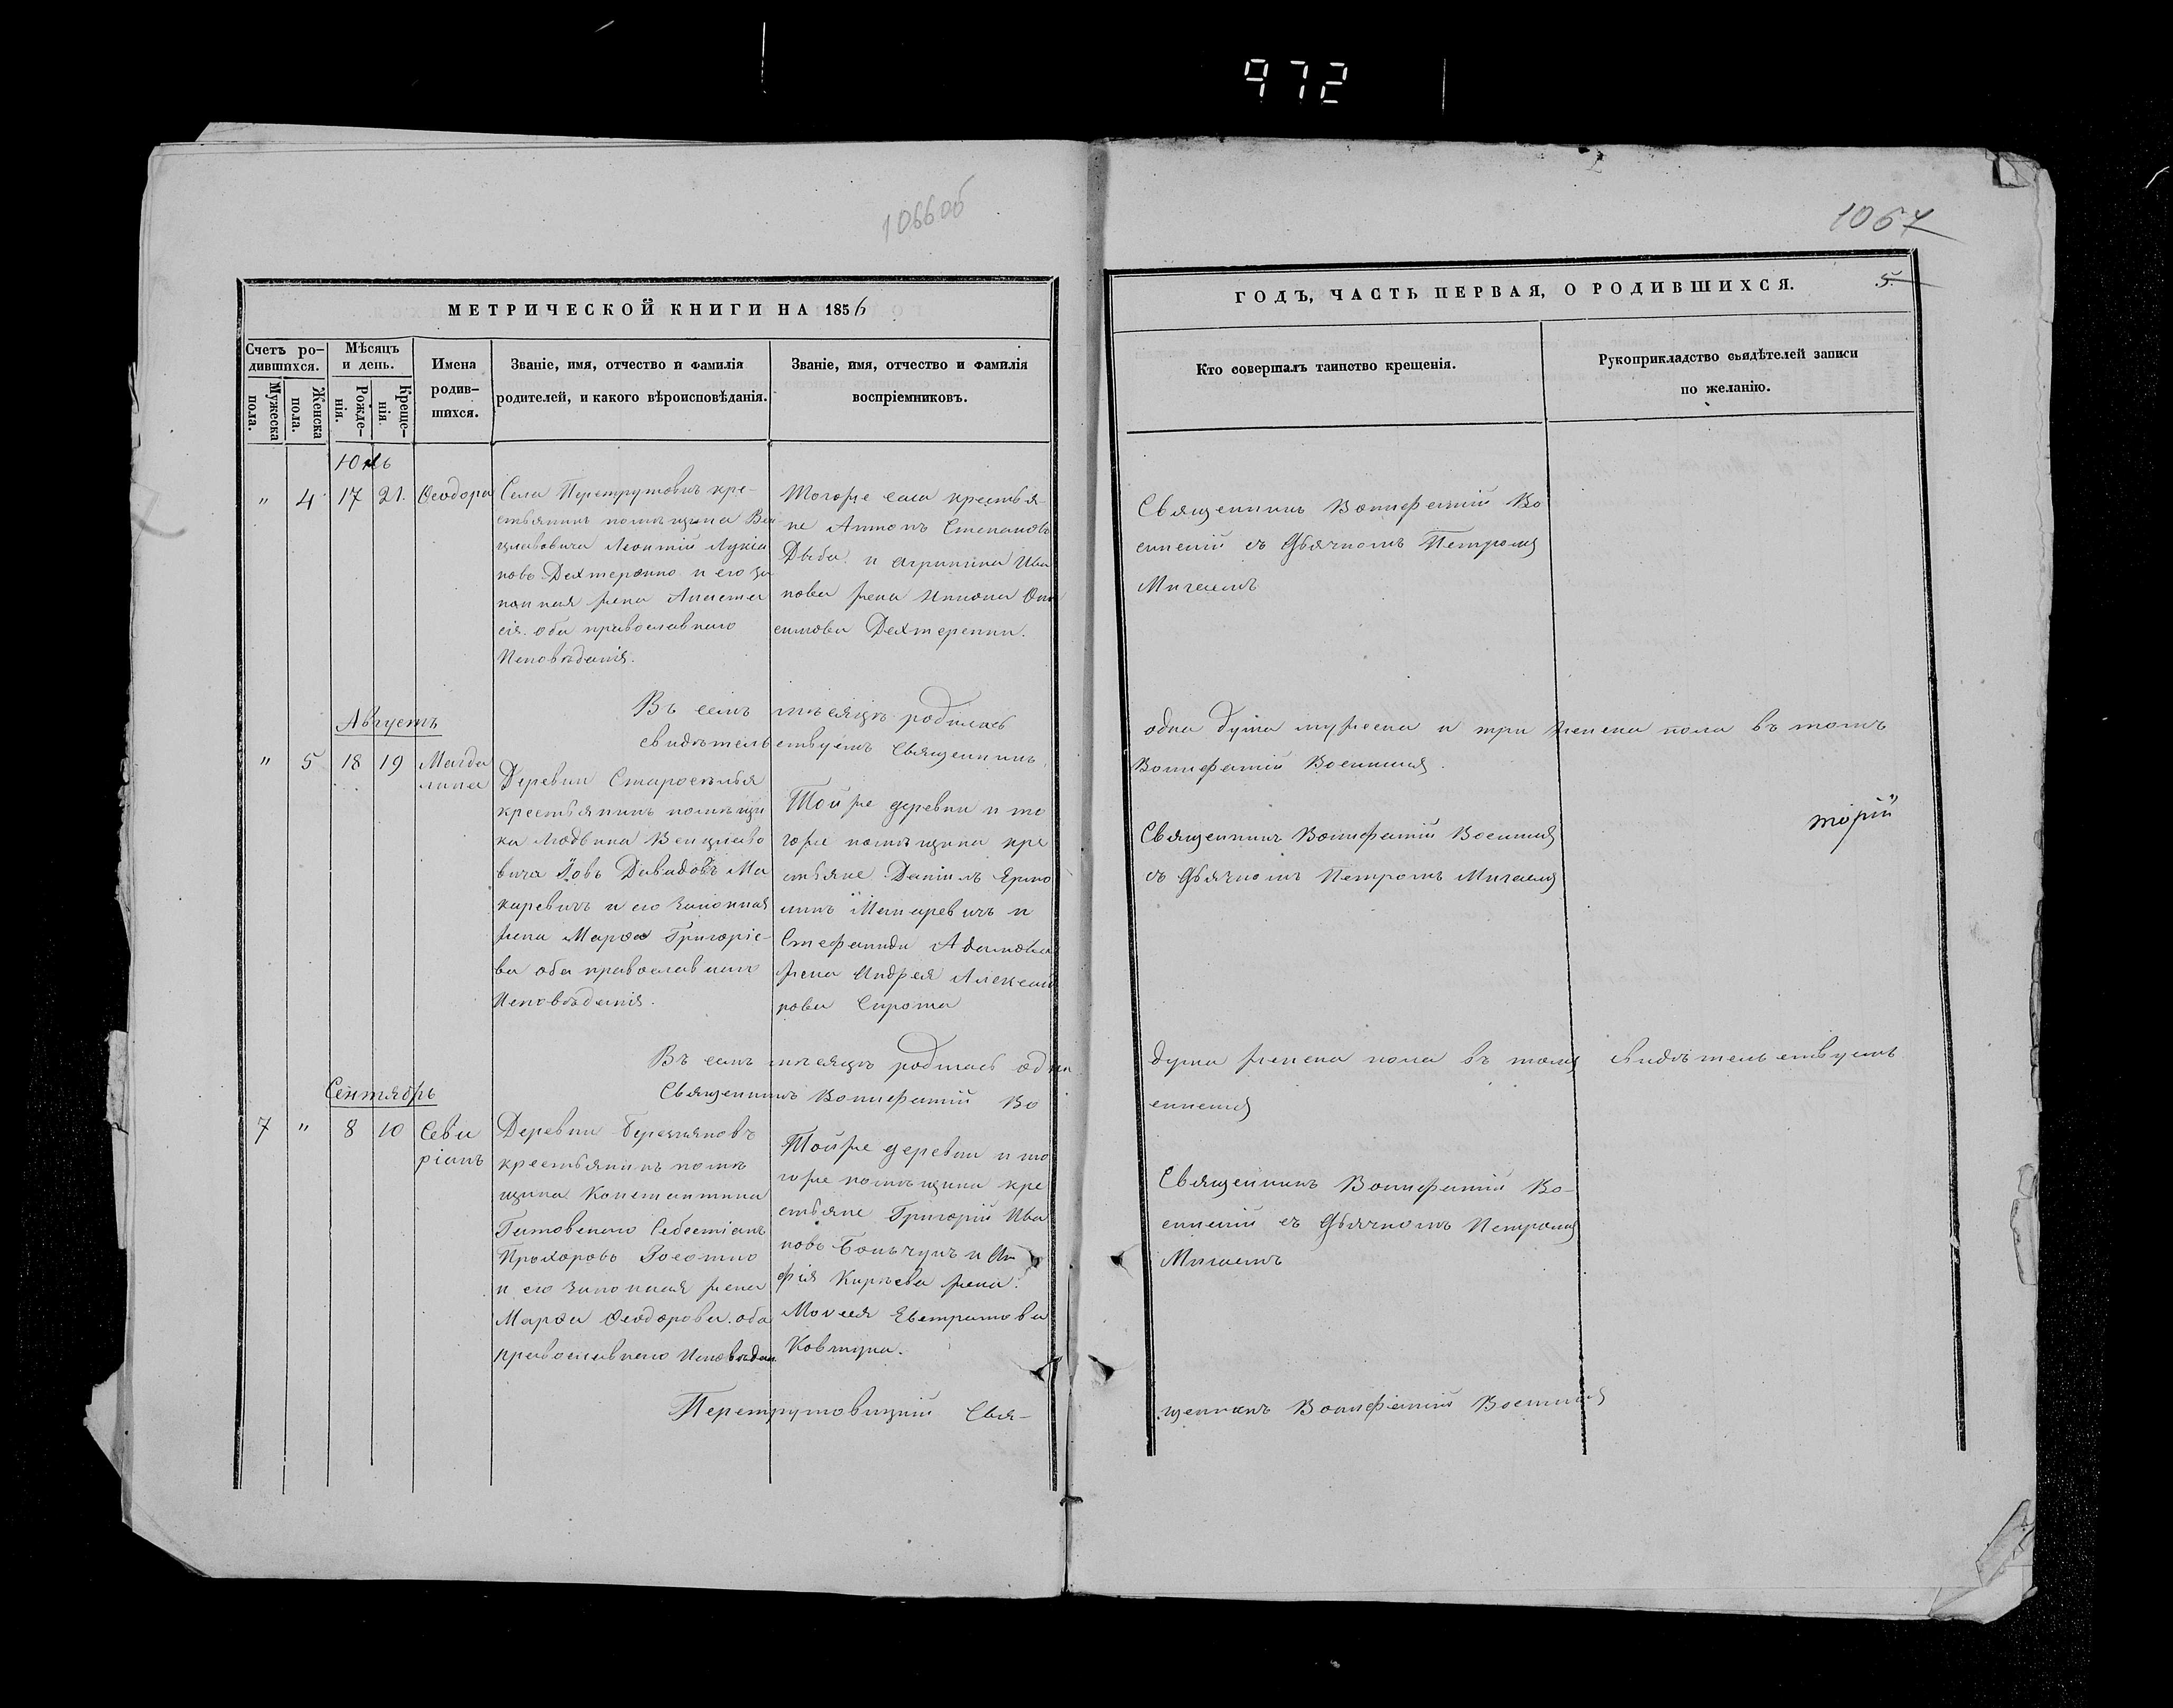 972
1066об
1067
МЕТРИЧЕСКОЙ КНИГИ НА 1856
ГОДЪ, ЧАСТЬ ПЕРВАЯ, О РОДИВШИХСЯ.
5.
Счетъ ро-
дившихся.
Мужеска
пола.
Женска
пола.
Мѣсяцъ
и день.
Рожде-
нія.
Креще-
нія.
Имена
родив-
шихся.
Званіе, имя, отчество и фамилія
родителей, и какого вѣроисповѣданія.
Званіе, имя, отчество и фамилія
воспріемниковъ.
Кто совершалъ таинство крещенія.
Рукоприкладство свидѣтелей записи
по желанію.
" 4 17 21. Ѳеодора
Села Перетрутовичъ кре-
стьянинъ помѣщика Вен
цлавовича Леонтій Лукіа
новъ Дехтеренко и его за
конная жена Анаста
сія. оба православнаго
Исповѣданія.
Тогоже села крестья-
не Антонъ Степановъ
Дыба и Агрипина Ива
нова жена
симова Дехтеренки.
Священникъ Вонифатій Во
енскій съ Дьячкомъ Петромъ
Въ семъ мѣсяцѣ родилось одна душа мужеска и три женска пола въ томъ
свидѣтельствуетъ Священникъ Вонифатій Военскій.
Августъ
" 5 18 19 Магда
лина
Деревни Старосѣлья
крестьянинъ помѣщи
ка Людвика Венцлаво
вича Іовъ Давидовъ Ма
каревичъ и его законная
жена Марѳа Григоріе-
ва оба православнаго
Исповѣданія.
Той же деревни и то
гоже помѣщика кре
стьяне Даніилъ
и
Стефанида Адамова
жена Андрея Алексан
рова Сирота
Священникъ Вонифатій Военскій
съ Дьячкомъ Петромъ
торій
Въ семъ мѣсяцѣ родилась одна душа женска пола въ томъ свидѣтельствуетъ
Священникъ Вонифатій Военскій
Сентябрь
7 " 8 10 Севи
ріанъ
Деревни
крестьянинъ помѣ
щика Константина
Себестіанъ
Прохоровъ
и его законная жена
Марѳа Ѳеодорова оба
православнаго Исповѣдан.
Тойже деревни и то
гоже помѣщика кре
стьяне Григорій Ива
новъ и
жена
Моисея Евстратова
Ковтуна.
Священникъ Вонифатій Во-
енскій съ Дьячкомъ Петромъ
Перетрутовицкій Свя-
щенникъ Вонифатій Военскій